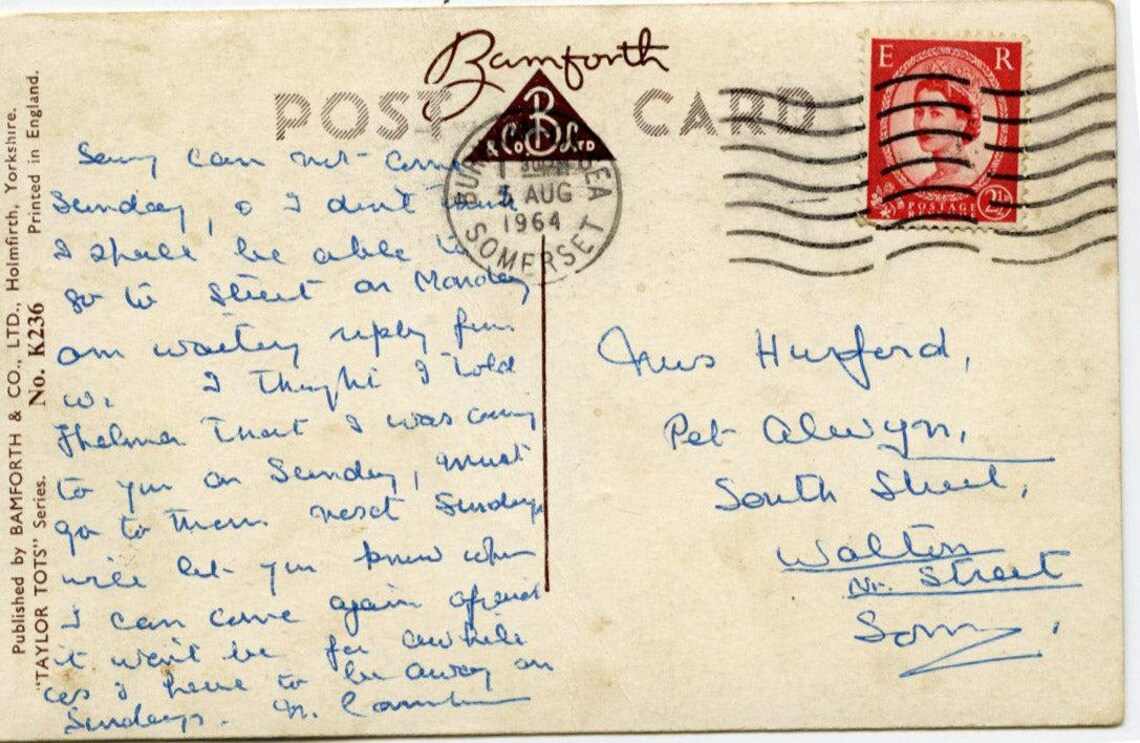 Bamforth
POST CARD
B
& Co. LTD
AUG
1964
SOMERSET
E R
POSTAGE 2½D
Published by BAMFORTH & CO., LTD., Holmfirth, Yorkshire.
"TAYLOR TOTS" Series. No. K236 Printed in England.
Sorry can not come
Sunday, & I don't think
I shall be able to
go to Street on Monday
am waiting reply from
I thought I told
Thelma that I was coming
to you on Sunday, must
go to them next Sunday
will let you know when
I can come again afraid
it won't be for awhile
as I have to be away on
Sundays. M.
Hurford,
Pet Alwyn,
South Street,
Walton
Nr. Street
Som,